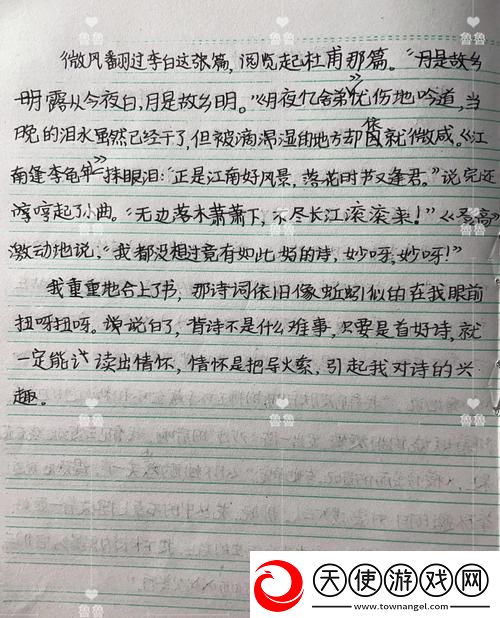 微风翻过李白这张篇，阅览起杜甫那篇。“月是故乡
明露从今夜白，月是故乡明。”《月夜忆舍弟》忧伤地吟道，当
晚的泪水虽然已经干了，但被滴湿的地方却依旧微咸。《江
南逢李龟年》一抹眼泪：“正是江南好风景，落花时节又逢君。”说完还
哼哼起了小曲。“无边落木萧萧下，不尽长江滚滚来！”《登高》
激动地说，“我都没想过竟有如此好的诗，妙呀，妙呀！”
我重重地合上了书，那诗词依旧像蚯蚓似的在我眼前
扭呀扭呀。说白了，背诗不是什么难事，只要是首好诗，就
一定能让读出情怀，情怀是把导火索，引起我对诗的兴
趣。
鲁鲁
天使游戏网
www.townangel.com